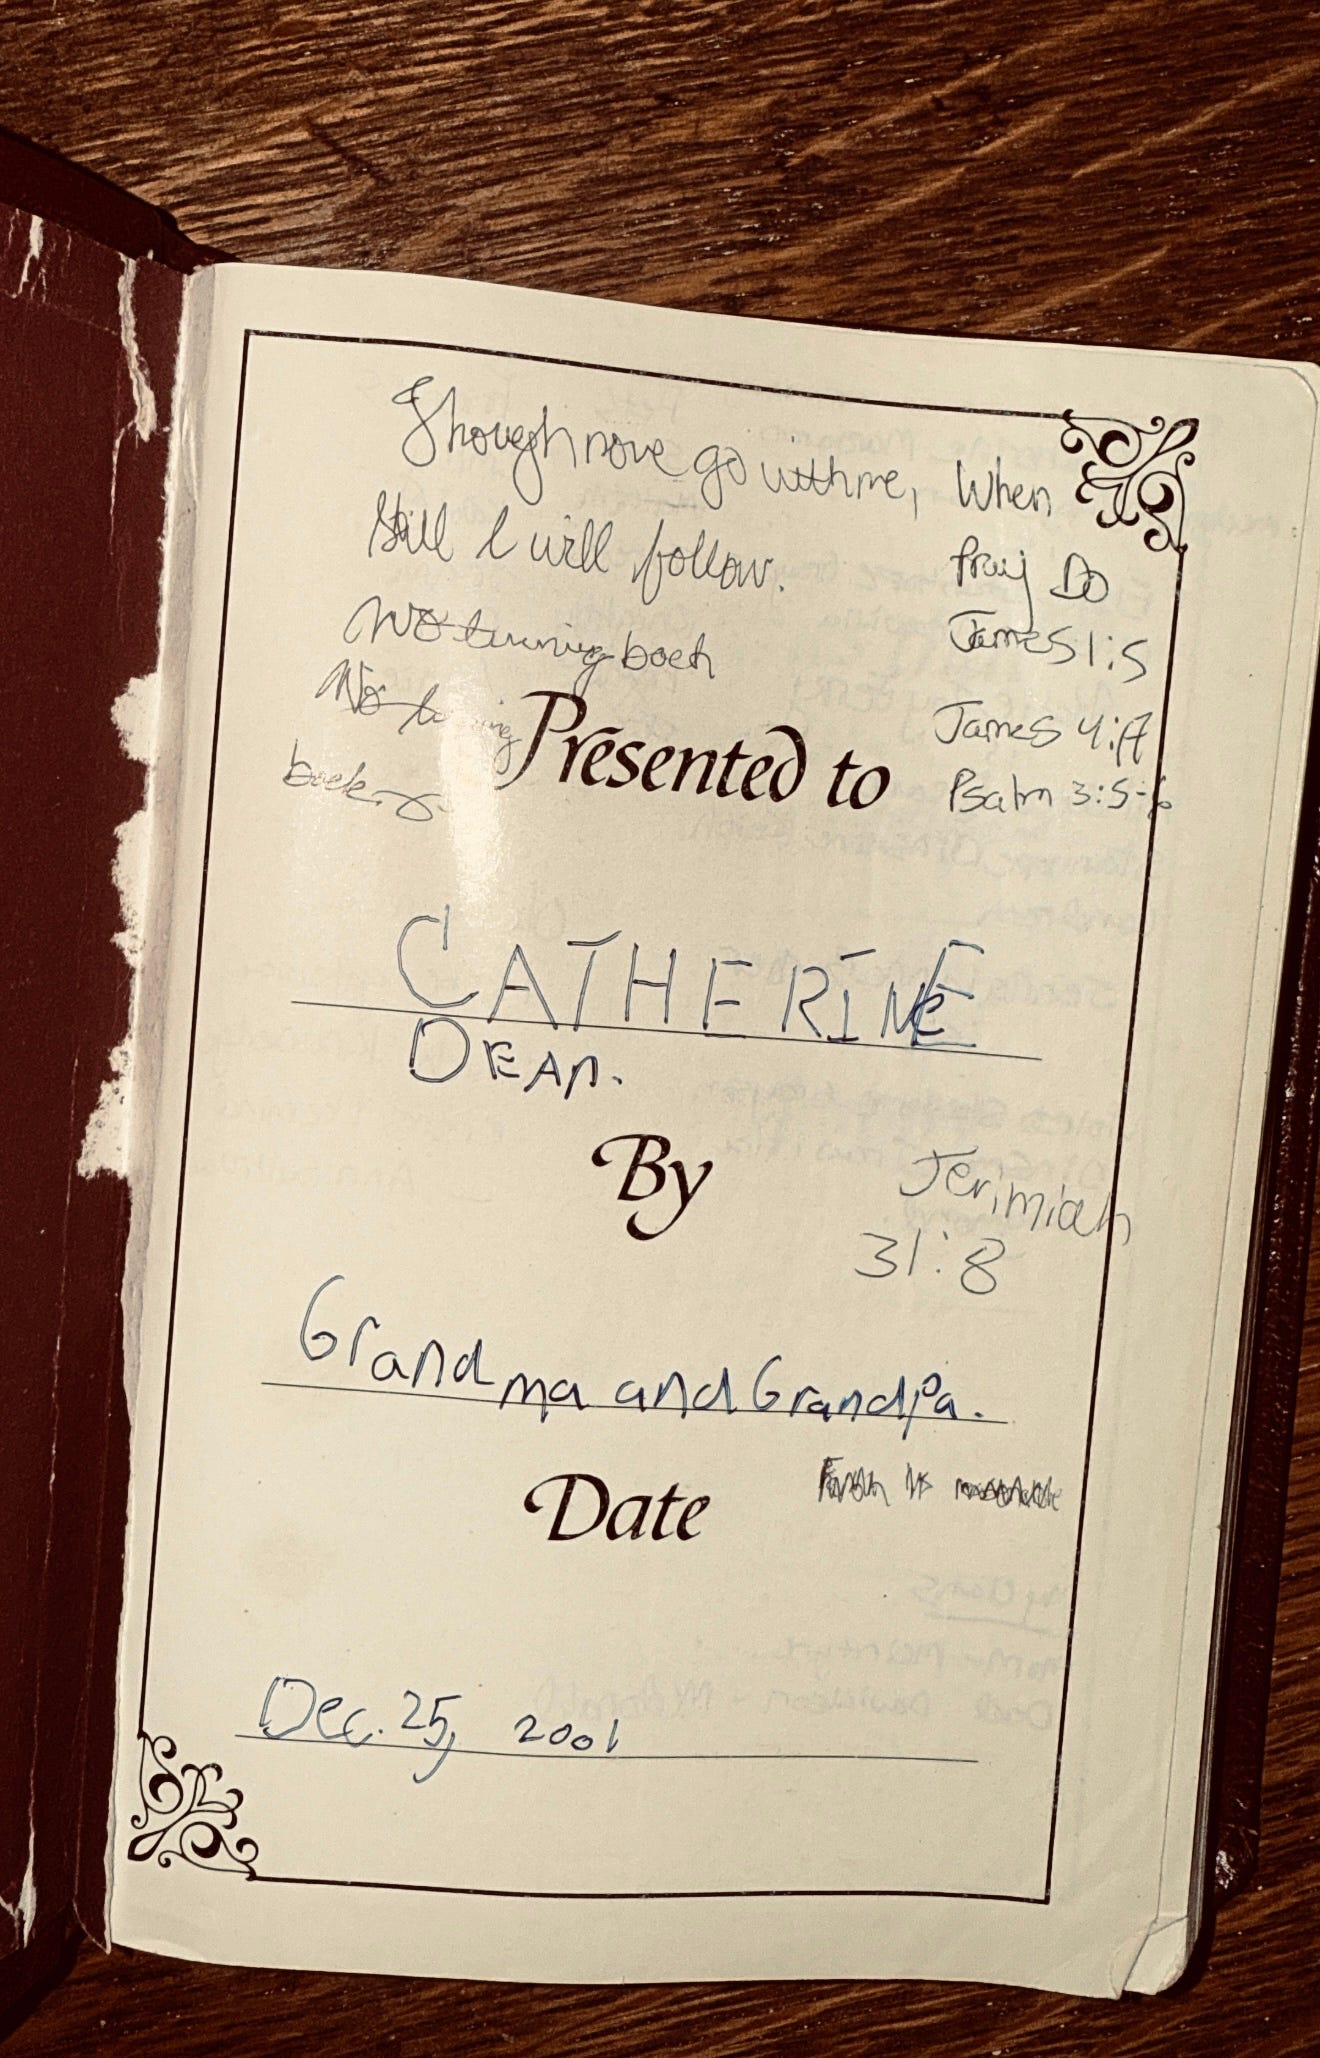 Though none go with me,
still I will follow.
No turning back
No turning
back
When
Pray Do
James 1:5
James 4:17
Psalm 3:5-6
Presented to
CATHERINE
DEAN.
By
Jerimiah
31:8
Grandma and Grandpa.
Date
Dec. 25, 2001